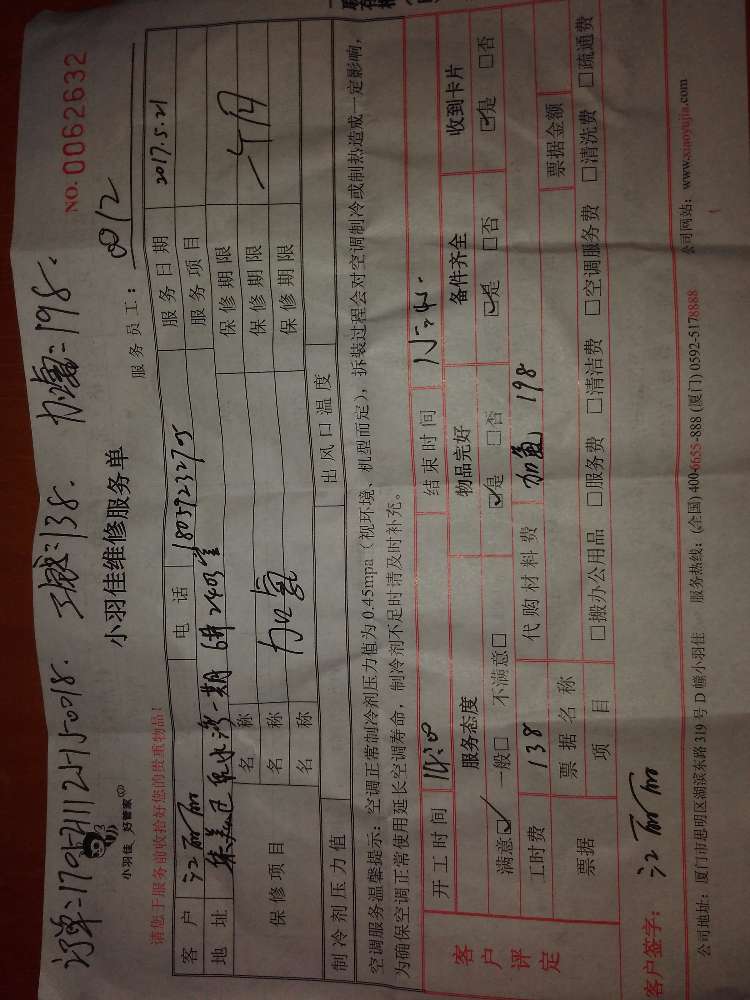 138. 加氟=198.
NO. 0062632
小羽佳 好管家
小羽佳维修服务单
服务员工: 0012
请您于服务前收拾好您的贵重物品!
客户 江丽丽 电话 服务日期 2017.5.21
地址 一期 2403室 服务项目
保修项目 名称 保修期限
名称 加氟 保修期限 一个月
名称 保修期限
制冷剂压力值 出风口温度
空调服务温馨提示:空调正常制冷剂压力值为0.45mpa(视环境、机型而定),拆装过程会对空调制冷或制热造成一定影响,
为确保空调正常使用延长空调寿命,制冷剂不足时请及时补充。
客户评定
开工时间 结束时间
服务态度 物品完好 备件齐全 收到卡片
满意☑ 一般□ 不满意□ ☑是 □否 ☑是 □否 ☑是 □否
工时费 138 代购材料费 加氟 198
票据 票据名称 票据金额
项目 □搬办公用品 □服务费 □清洁费 □空调服务费 □清洗费 □疏通费
客户签字: 江丽丽
公司地址:厦门市思明区湖滨东路319号D幢小羽佳 服务热线:(全国)400-6655-888 (厦门)0592-5178888 公司网站:www.xiaoyujia.com